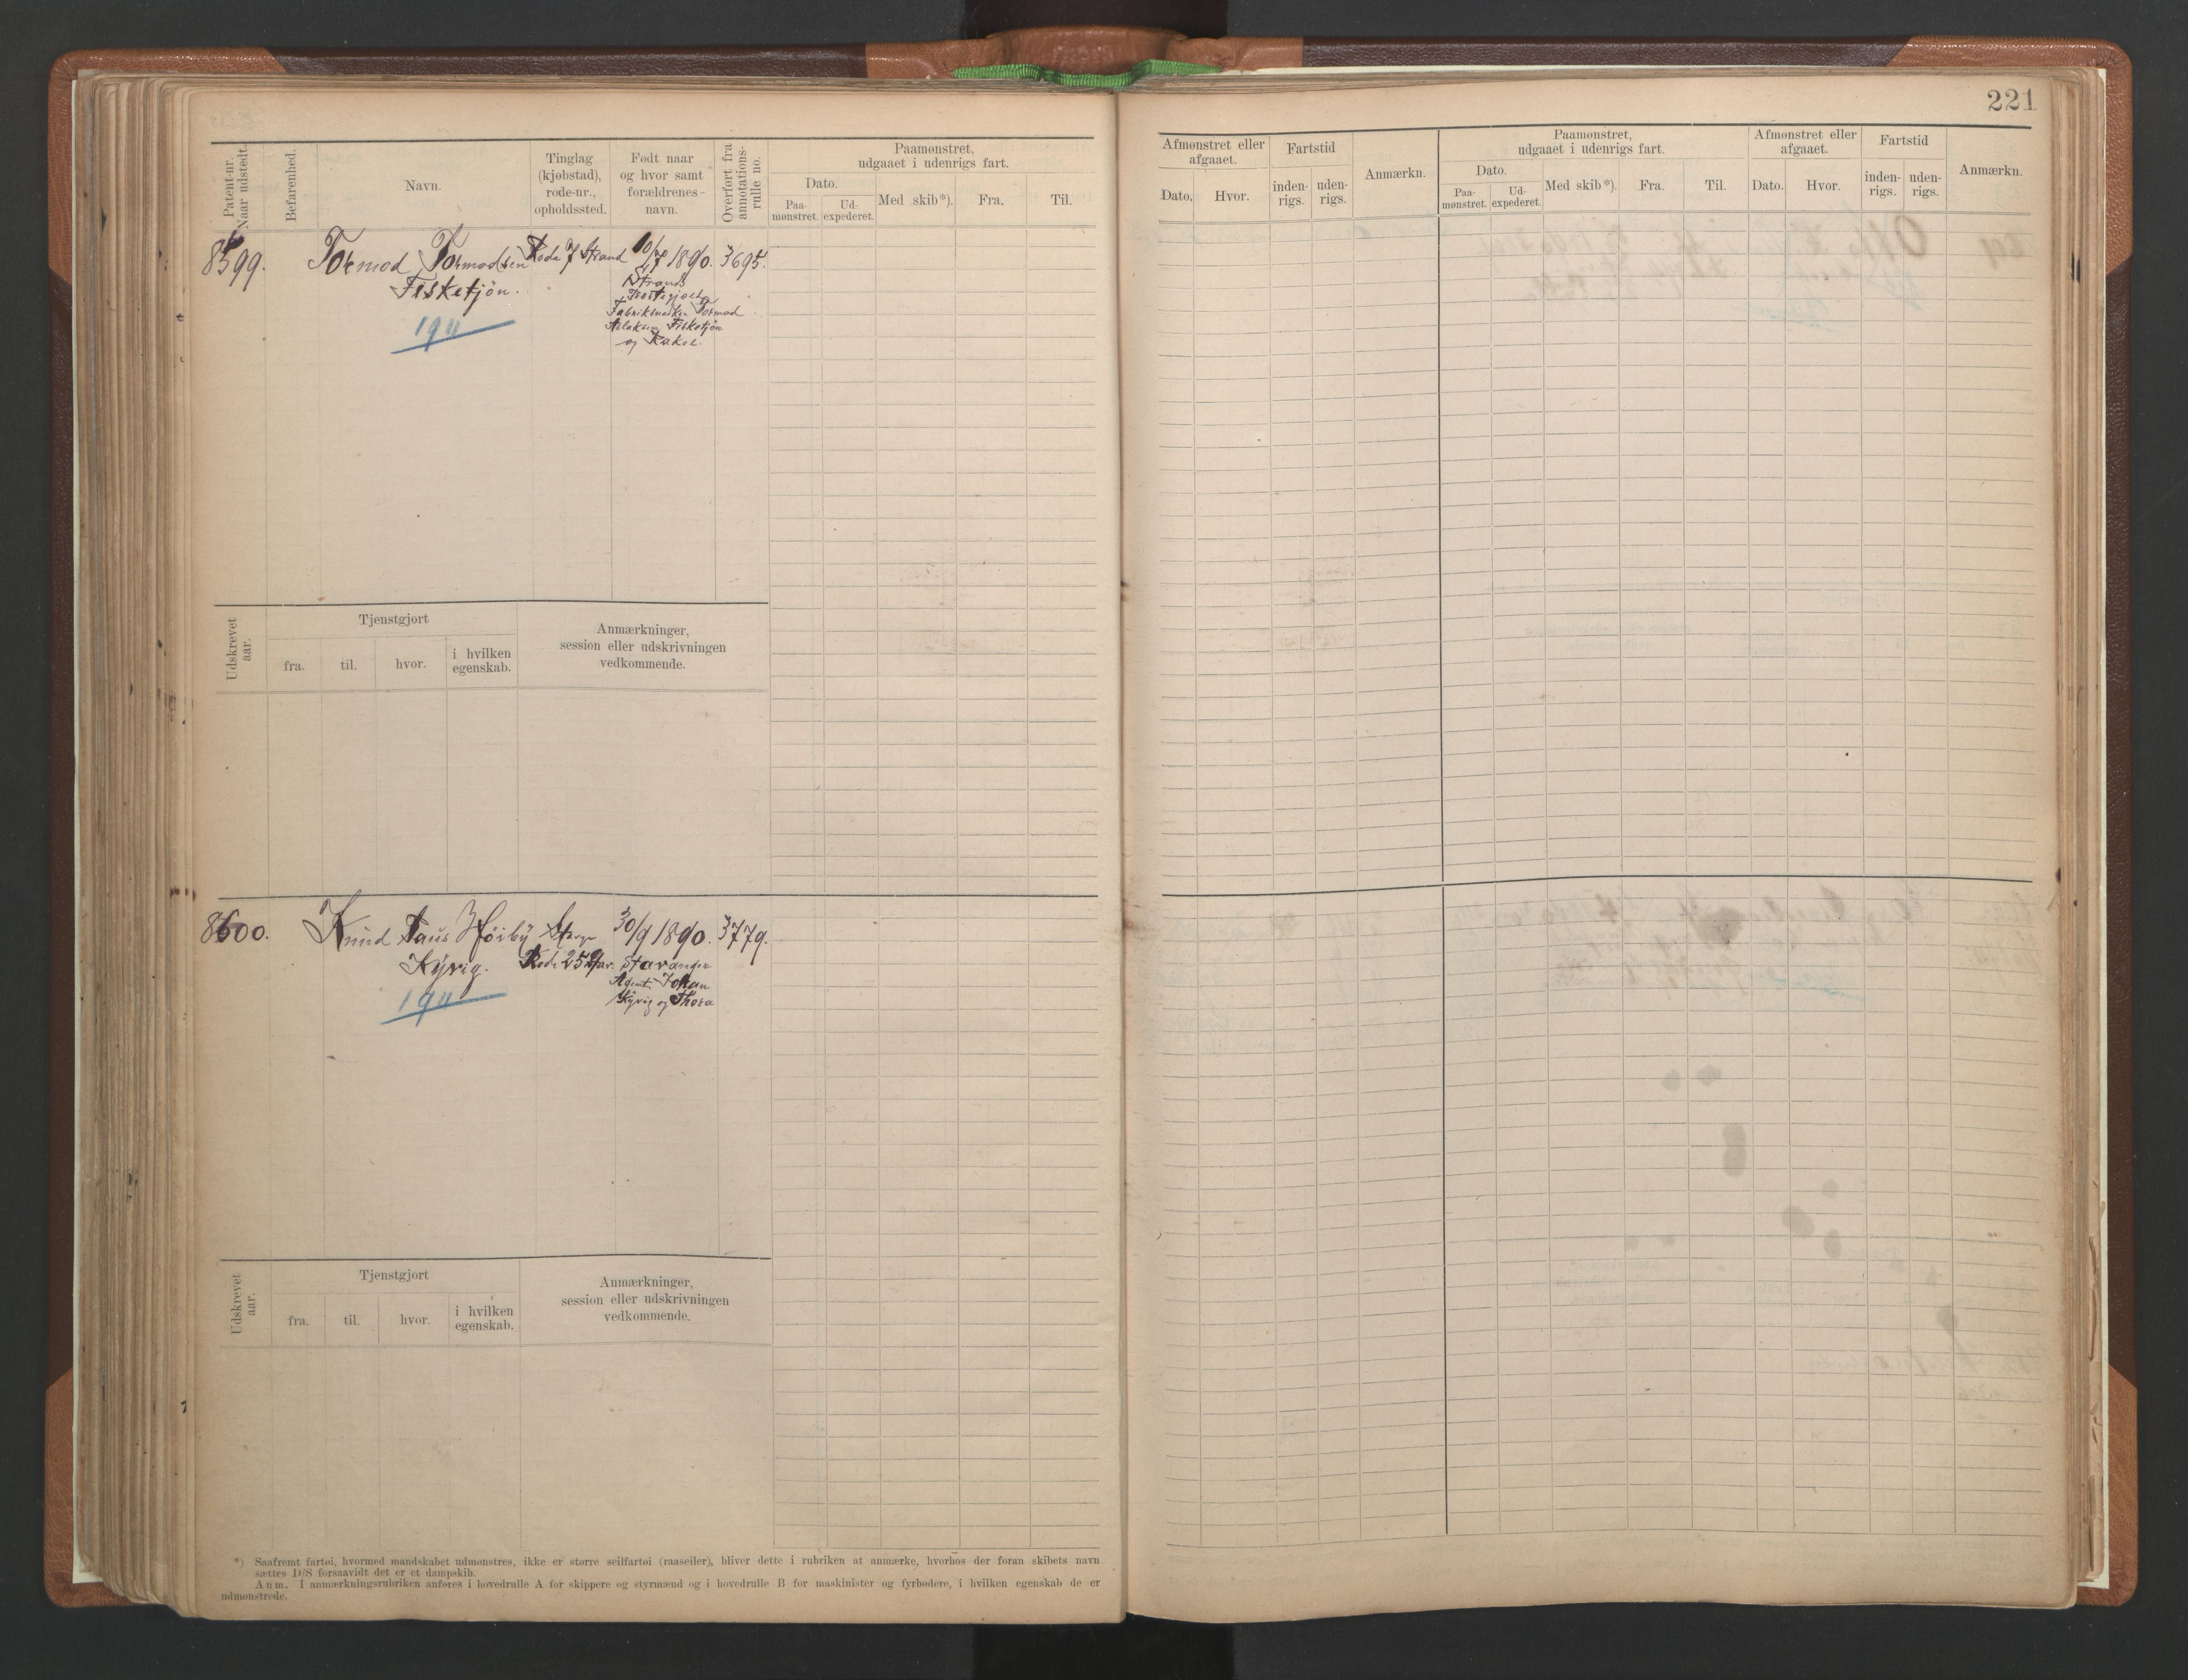 221
Patent-nr.
Naar udstedt.
Befarenhed.
Navn.
Tinglag
(kjøbstad),
rode-nr.,
opholdssted.
Født naar
og hvor samt
forældrenes-
navn.
Overført fra
annotations-
rulle no.
Paamønstret,
udgaaet i udenrigs fart.
Dato.
Paa-
mønstret.
Ud-
expederet.
Med skib*).
Fra.
Til.
Afmønstret eller
afgaaet.
Dato.
Hvor.
Fartstid
inden-
rigs.
uden-
rigs.
Anmærkn.
Paamønstret,
udgaaet i udenrigs fart.
Dato.
Paa-
mønstret.
Ud-
expederet.
Med skib*).
Fra.
Til.
Afmønstret eller
afgaaet.
Dato.
Hvor.
Fartstid
inden-
rigs.
uden-
rigs.
Anmærkn.
8599. Tormod Tormodsen Rode 7 Strand 10/7 1890. 3695.
Fisketjön. Strands
1911
Tormod
Aslaksen Fisketjön
og Rakel.
Udskrevet
aar.
Tjenstgjort
fra.
til.
hvor.
i hvilken
egenskab.
Anmærkninger,
session eller udskrivningen
vedkommende.
8600. Knud Taus Höiby 30/9 1890. 3779.
Kyvig. Rode 25 Stavanger
1911
Agent Johan
Kyvig og Thora
Udskrevet
aar.
Tjenstgjort
fra.
til.
hvor.
i hvilken
egenskab.
Anmærkninger,
session eller udskrivningen
vedkommende.
*) Saafremt fartøi, hvormed mandskabet udmønstres, ikke er større seilfartøi (raaseiler), bliver dette i rubriken at anmærke, hvorhos der foran skibets navn
sættes D/S forsaavidt det er et dampskib.
Anm. I anmærkningsrubriken anføres i hovedrulle A for skippere og styrmænd og i hovedrulle B for maskinister og fyrbødere, i hvilken egenskab de er
udmønstrede.